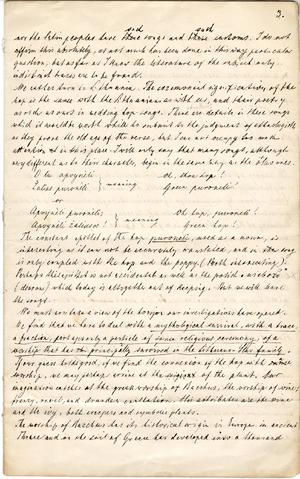 3.
and such
are the Letin peoples have these songs and these customs. I do not
affirm this absolutely, as not much has been done in this very particular
question, but as far as I know the literature of the subject only
indistinct traces are to be found.
We rather turn to Lithuania. The ceremonial signification of the
hop is the same with the Lithuanians as with us, and their poetry
worth as ours in wedding hop songs. There are details in these songs
which it would be worth while to submit to the judgment of
as they prove the old age of the verse, but I can not occupy too much
attention in this place. I will only say that many songs, although
very different as to their character, begin in the same way as the
O tu apvynėli
Žalias puronėli
meaning
Oh, thou hop!
Green puronėli!
or
Apvynėli puronėli
Apvynėli žaliasis!
meaning
Oh hop, puronėli!
Green hop!
The constant epithet of the hop puronėli, used as a noun, is
interesting as it can not be accurately translated, and in the song
is only coupled with the hop and the poppy. (Both intoxicating).
Perhaps the epithet is not accidental as well as the
which today is altogether out of keeping. But so we have
the songs.
We must now take a view of the horizon our investigations have opened.
We find that we have to deal with a mythological survival, with a trace,
a fraction, portiuncula particle of some religious ceremony, of a
worship that has principally survived in the Lithuano-Slav family.
If our guess holds good, if we find the connection of the hop with
worship, we may perhaps arrive at the origins of the plant. Our
imagination catches at the greek worship of Bacchus, the worship of wine,
frenzy, revel, and drunken exultation. His attributes are the wine
and the ivy, both creepers and symbolic plants.
The worship of Bacchus has its historical origin in Europe in ancient
Thrace and on the soil of Greece has developed into a thousand